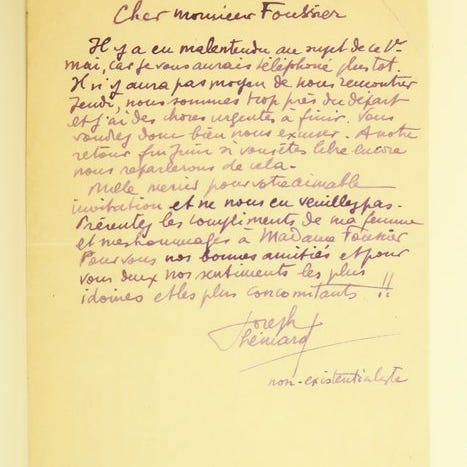 Cher monsieur Foussier
Il y a eu malentendu au sujet de ce 1er
mai, car je vous aurais téléphoné plus tot.
Il n'y aura pas moyen de nous rencontrer
jeudi, nous sommes trop près du départ
et j'ai des choses urgentes à finir. Vous
voudrez donc bien nous excuser. A notre
retour fin Juin si vous êtes libre encore
nous reparlerons de cela.
Mille mercis pour votre aimable
invitation et ne nous en veuillez pas.
Présentez les compliments de ma femme
et mes hommages à Madame Foussier
Pour vous nos bonnes amitiés et pour
vous deux nos sentiments les plus
idoines et les plus concomitants !!
Joseph
Hémard
non-existentialiste